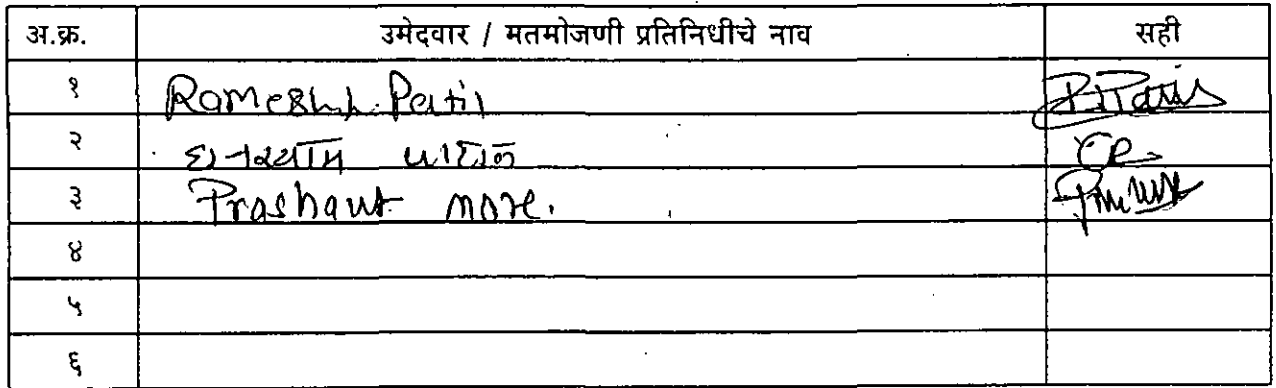 अ.क्र. उमेदवार / मतमोजणी प्रतिनिधीचे नाव सही
१ Ramesh h. Patil
२ घनश्याम पाटील
३ Prashant more.
४
५
६